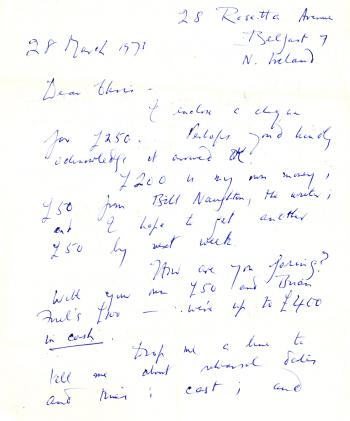 28 Rosetta Avenue
Belfast 7
N. Ireland
28 March 1973
Dear Chris -
I enclose a cheque
for £250. Perhaps you'd kindly
acknowledge it arrived OK.
£200 is my own money;
£50 from Bill Naughton, the writer;
and I hope to get another
£50 by next week
How are you faring?
With your own £50 and Brian
Friel's £100 — we're up to £400
in cash.
Drop me a line to
tell me about rehearsal dates
and times; cast; and